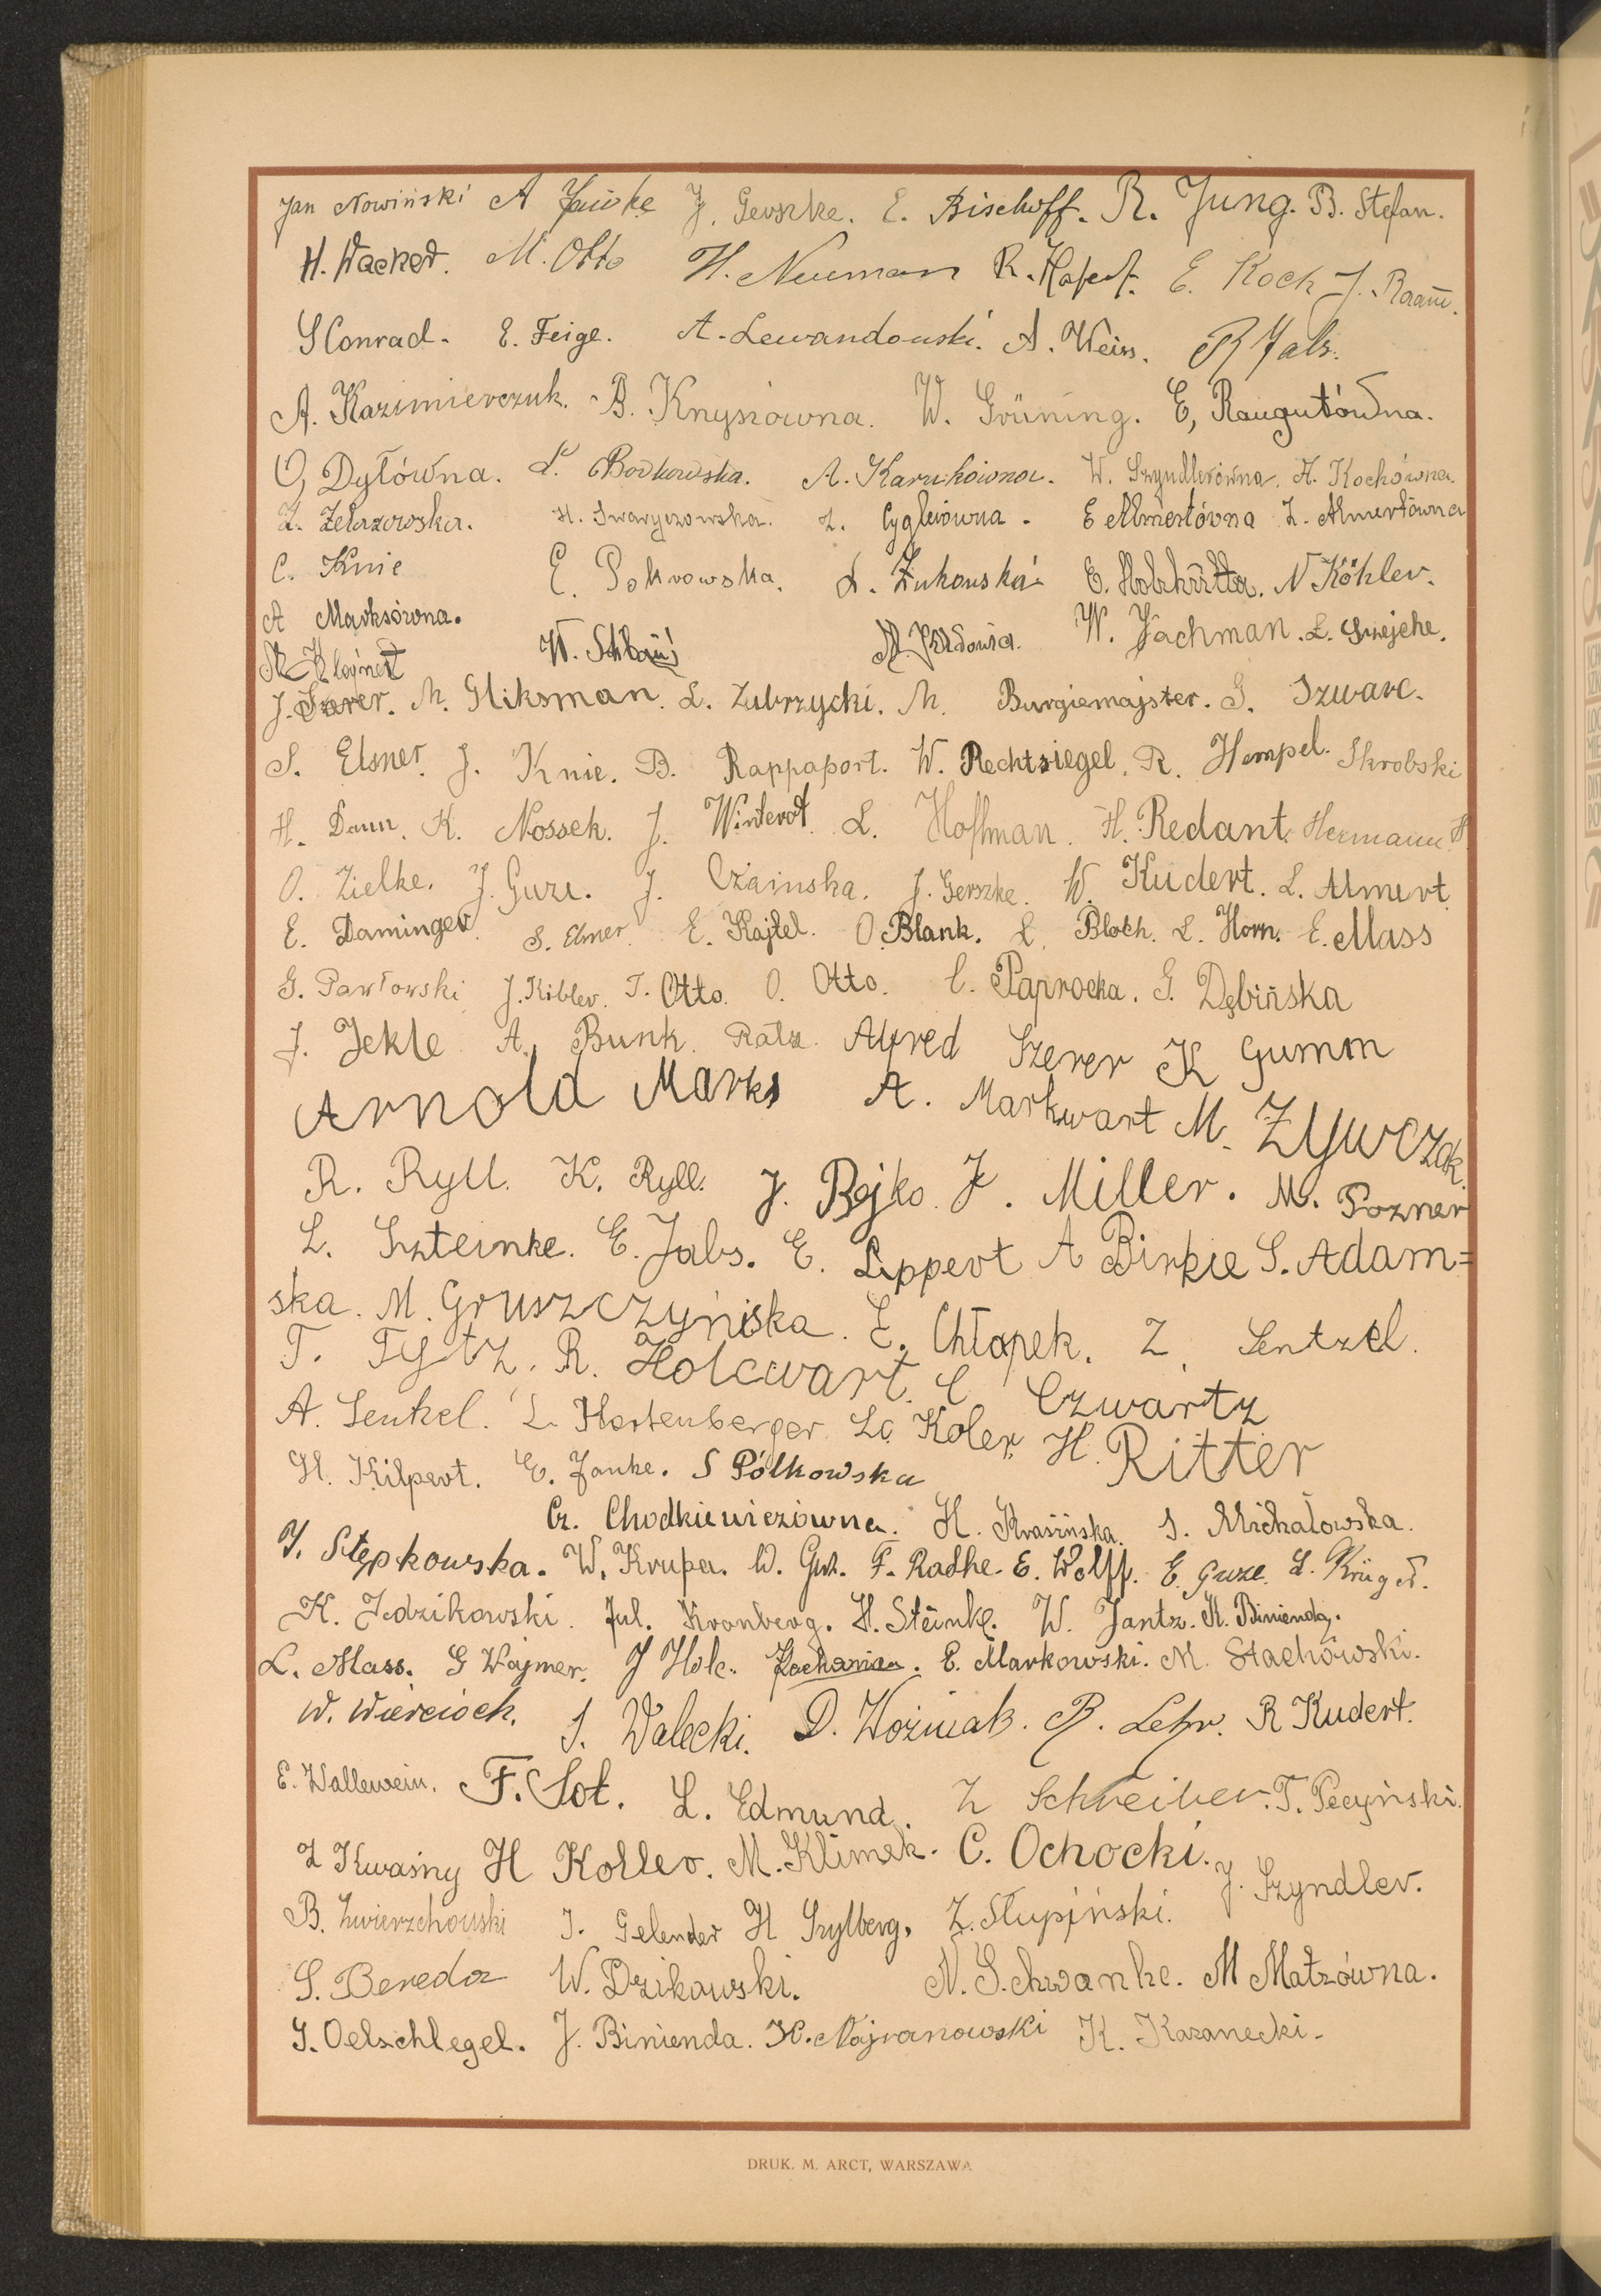 Jan Nowiński A J. Gerszke. E. Bischoff. R. Jung. B. Stefan.
H. Wacker. M. Otto H. Neuman R. E. Koch J.
S Conrad. E. Feige. A. Lewandowski. A. Weiss. R Jabs.
A. Kazimierczuk. B. Knysiówna. W. Grüning. E, Raugutówna.
O, Dyłówna. L. Borkowska. A. Karnikówna. W. Szyndlerówna. H. Kochówna.
Z. Żelazowska. H. Swaryczowska. Z. Cyglerówna. E Almertówna Z. Almertówna
C. Knie E. Pokrowska. L. Żukowska E. N Köhler.
A Marksówna.
Klajnert W. W. Jachman. L.
J. Szerer. M. Gliksman. L. Zubrzycki. M. Burgiemajster. S. Szwarc.
S. Elsner. J. Knie. B. Rappaport. W. Rechtsiegel. R. Hempel. Skrobski
H. Daun. K. Nossek. J. Winterot. L. Hoffman. H. Redant. Hermann H
O. Zielke. J. Guze. J. Czaińska. J. Gerszke. W. Kudert. L. Almert.
E. Daminger. S. Elsner. E. Kajtel. O. Blank. L. Bloch. L. Horn. E. Mass
G. Pawłowski J. Kibler. T. Otto. O. Otto. C. Paprocka. G. Dębińska
J. Jekle A. Bunk. Ratz. Alfred Szerer K Gumm
Arnold Marks A. Markwart M. Zlywczak.
R. Ryll. K. Ryll. J. Bejko. J. Miller. M. Pozner
L. Szteinke. E. Jabs. E. Lippert A Birkie S. Adam=
ska. M. Gruszczyńska. E. Chłapek. Z. Lentzel.
T. Tytz. R. Holcwart. C Czwartz
A. Senkel. L. Hartenberger. Lo. Koler. H. Ritter
H. Kilpert. E. Janke. S Pólkowska
Cz. Chodkiewiczówna. H. Krasińska. S. Michałowska.
J. Stępkowska. W. Krupa. W. F. Radke. E. Wolff. E. Guze. L. Krüger.
K. Jedzikowski. Jul. Kronberg. H. Steinke. W. Jantz. K. Binienda.
L. Mass. G Wajmer. J Holc. E. Markowski. M. Stachowski.
W. Wiercioch. S. Walecki. D. Woźniak. B. Lehr. R Kudert.
E. Wallewein. F. Sot. L. Edmund. Z Schreiber. T. Pecyński.
Z Kwaśny H Koller. M. Klimek. C. Ochocki. J. Szyndler.
B. Zwierzchowski J. Gelender H Szylberg. Z. Słupiński.
S. Bereda W. Dzikowski. N. Schwanke. M Matzówna.
J. Oelschlegel. J. Binienda. K. Najranowski K. Kazanecki.
DRUK. M. ARCT, WARSZAWA